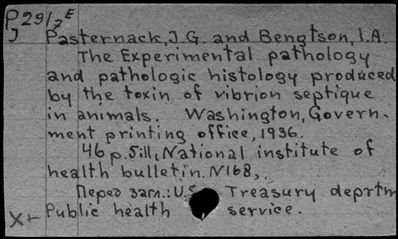 P29/7E
J Pasternack, J.G. and Bengtson, I.A.
The Experimental pathology
and pathologic histology produced
by the toxin of vibrion septique
in animals. Washington, Govern-
ment printing office, 1936.
46 p. 5 ill, National institute of
health bulletin. N168,.
Перед заг.: U.S. Treasury deprtm
X+ Public health service.